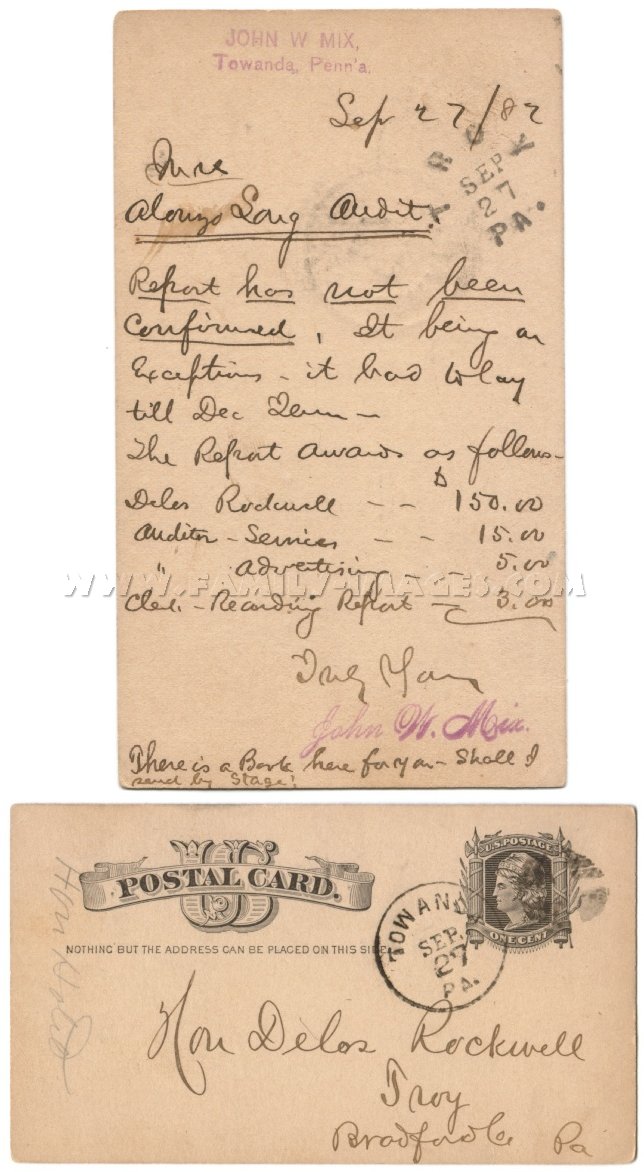 JOHN W MIX,
Towanda, Penn'a.
Sep 27/82
TROY
SEP
27
PA.
In re
Alonzo Long Audit.
Report has not been
Confirmed, It being on
Exceptions - it had to lay
till Dec Term -
The Report awards as follows -
Delos Rockwell - - $150.00
Auditor - Services - - 15.00
" Advertising - - 5.00
Clerk - Recording Report - 3.00
WWW.FAMILY-IMAGES.COM
Truly Yours
John W. Mix.
There is a Book here for you - Shall I
send by Stage?
US
POSTAL CARD.
U.S. POSTAGE
ONE CENT
NOTHING BUT THE ADDRESS CAN BE PLACED ON THIS SIDE.
TOWANDA
SEP.
27
PA.
Hon Delos Rockwell
Troy
Bradford Co
Pa